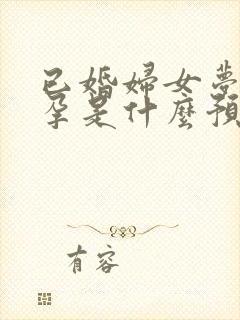 已婚婦女夢
孕是什麼預
有容